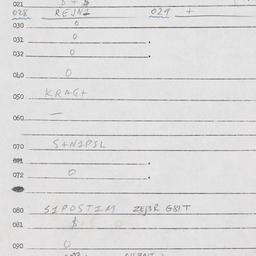 021 $ + $
028 REJN1 029 +
030 0
031 0
032 0
040 0
050 KRAG+
060 —
070 S+N1PSL
071
072 0
080 S1POST1M ZEJ3R G81T
081 $
090 0